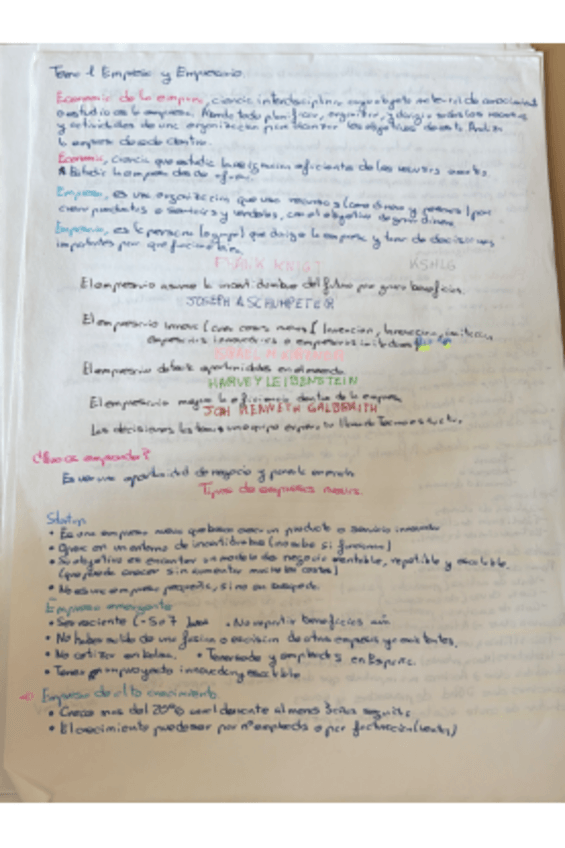 Tema 1 Empresa y Empresario.
Economía de la empresa, ciencia interdisciplinar cuyo objeto material de conocimiento
o estudio es la empresa. Aborda todo planificar, organizar, y dirigir todos los recursos
y actividades de una organización para alcanzar los objetivos de esta. Analiza
la empresa desde dentro.
Economía, ciencia que estudia la asignación eficiente de los recursos escasos.
Estudia la empresa desde afuera.
Empresa, es una organización que usa recursos (como dinero y personas) para
crear productos o servicios y venderlos, con el objetivo de ganar dinero.
Empresario, es la persona (o grupo) que dirige la empresa y toma de decisiones
importantes para que funcione bien.
FRANK KNIGT KSHLG
El empresario asume la incertidumbre del futuro para ganar beneficios.
JOSEPH A SCHUMPETER
El empresario innova (crea cosas nuevas) Invención, Innovación, imitación
empresarios innovadores o empresarios imitadores
ISRAEL M KIRZNER
El empresario detecta oportunidades en el mercado.
HARVEY LEIBENSTEIN
El empresario mejora la eficiencia dentro de la empresa
JOH KENNETH GALBRAITH
Las decisiones las toma un equipo experto llamado Tecnoestructura.
¿Que es emprender?
Es ver una oportunidad de negocio y ponerla en marcha
Tipos de empresas nuevas.
Startup
• Es una empresa nueva que busca crear un producto o servicio innovador
• Opera en un entorno de incertidumbre (no sabe si funcionará)
• Su objetivo es encontrar un modelo de negocio rentable, repetible y escalable.
(que puede crecer sin aumentar mucho los costes)
• No es una empresa pequeña, sino en búsqueda
Empresa emergente
• Ser reciente (-5 o 7 • No repartir beneficios aún
• No haber salido de una fusion o escision de otras empresas ya existentes.
• No cotizar en bolsa. • Tener sede y empleados en España.
• Tener un proyecto innovador y escalable
Empresa de alto crecimiento
• Crece mas del 20% anual durante al menos 3 años seguidos
• El crecimiento puede ser por nº empleados o por facturación (ventas)